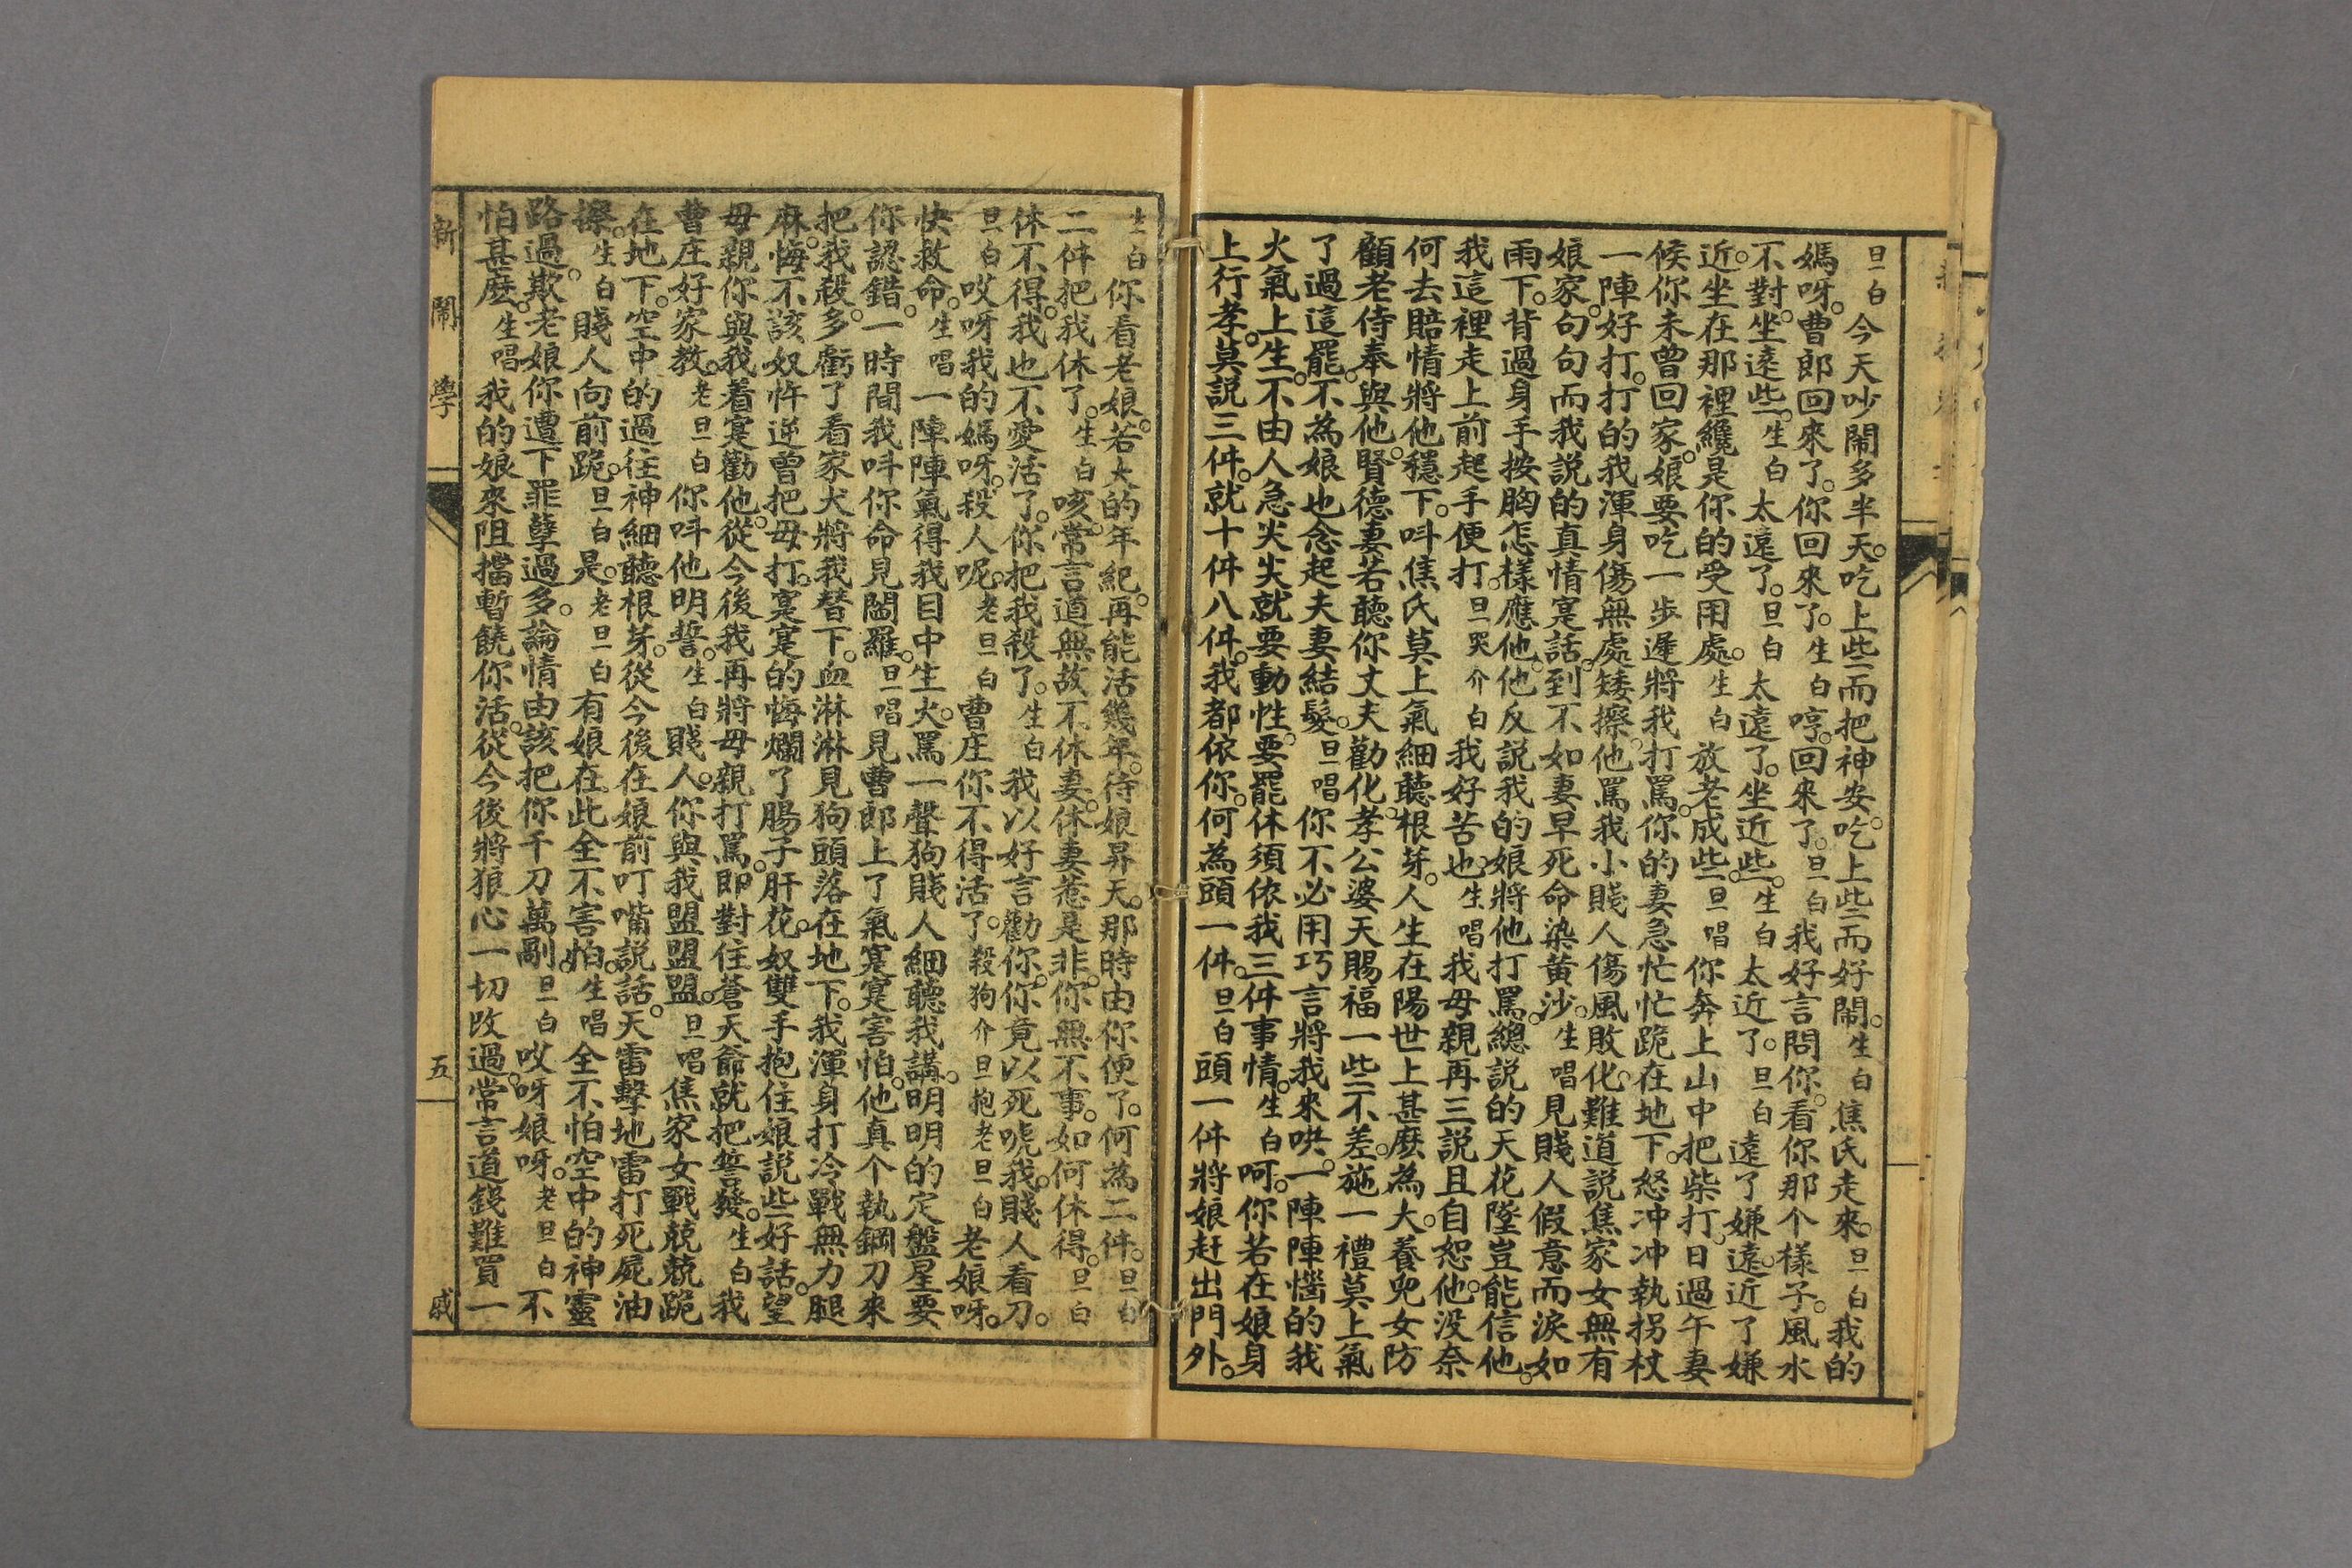 旦白今天吵鬧多半天。吃上些而把神安。吃上些而好鬧。生白焦氏走來。旦白我的
媽呀。曹郎回來了。你回來了。生白哼。回來了。旦白我好言問你。看你那个樣子。風水
不對。坐遠些。生白太遠了。旦白太遠了。坐近些。生白太近了。旦白遠了嫌遠。近了嫌
近。坐在那裡纔是你的受用處。生白放老成些。旦唱你奔上山中把柴打。日過午妻
候你未曾回家。娘要吃一步遲將我打罵。你的妻急忙忙跪在地下。怒冲冲執拐杖
一陣好打。打的我渾身傷無處矮擦。他罵我小賤人傷風敗化。難道説焦家女無有
娘家。句句而我説的真情寔話。到不如妻早死命染黄沙。生唱見賤人假意而淚如
雨下。背過身手按胸怎樣應他。他反説我的娘將他打罵。總説的天花墜豈能信他。
我這裡走上前起手便打。旦哭介白我好苦也。生唱我母親再三説且自恕他。没奈
何去賠情將他穩下。呌焦氏莫上氣細聽根芽。人生在陽世上甚麽為大。養兒女防
顧老侍奉與他。賢德妻若聽你丈夫勸化。孝公婆天賜福一些不差。施一禮莫上氣
了過這罷。不為娘也念起夫妻結髮。旦唱你不必用巧言將我來哄。一陣陣惱的我
火氣上生。不由人急尖尖就要動性。要罷休須依我三件事情。生白呵。你若在娘身
上行孝。莫説三件。就十件八件。我都依你。何為頭一件。旦白頭一件將娘赶出門外。
生白你看老娘。若大的年紀。再能活幾年。待娘昇天。那時由你便了。何為二件。旦白
二件把我休了。生白咳。常言道無故不休妻。休妻惹是非。你無不事。如何休得。旦白
休不得。我也不愛活了。你把我殺了。生白我以好言勸你。你竟以死唬我。賤人看刀。
旦白哎呀我的媽呀。殺人呢。老旦白曹庄你不得活了。殺狗介旦抱老旦白老娘呀。
快救命。生唱一陣陣氣得我目中生火。罵一聲狗賤人細聽我講。明明的定盤星要
你認錯。一時間我呌你命見閻羅。旦唱見曹郎上了氣寔寔害怕。他真个執鋼刀來
把我殺。多虧了看家犬將我替下。血淋淋見狗頭落在地下。我渾身打冷戰無力腿
麻。悔不該奴忤逆曾把母打。寔寔的悔爛了腸子肝花。奴雙手抱住娘説些好話。望
母親你與我着寔勸他。從今後我再將母親打罵。即對住蒼天爺就把誓發。生白我
曹庄好家教。老旦白你呌他明誓。生白賤人。你與我盟盟盟。旦唱焦家女戰兢兢跪
在地下。空中的過往神細聽根芽。從今後在娘前叮嘴説話。天雷擊地雷打死屍油
擦。生白賤人向前跪。旦白是。老旦白有娘在此全不害怕。生唱全不怕空中的神靈
路過。欺老娘你遭下罪孽過多。論情由該把你千刀萬剮。旦白哎呀娘呀。老旦白不
怕甚麽。生唱我的娘來阻擋暫饒你活。從今後將狼心一切改過。常言道錢難買一
新鬧學 五 戚